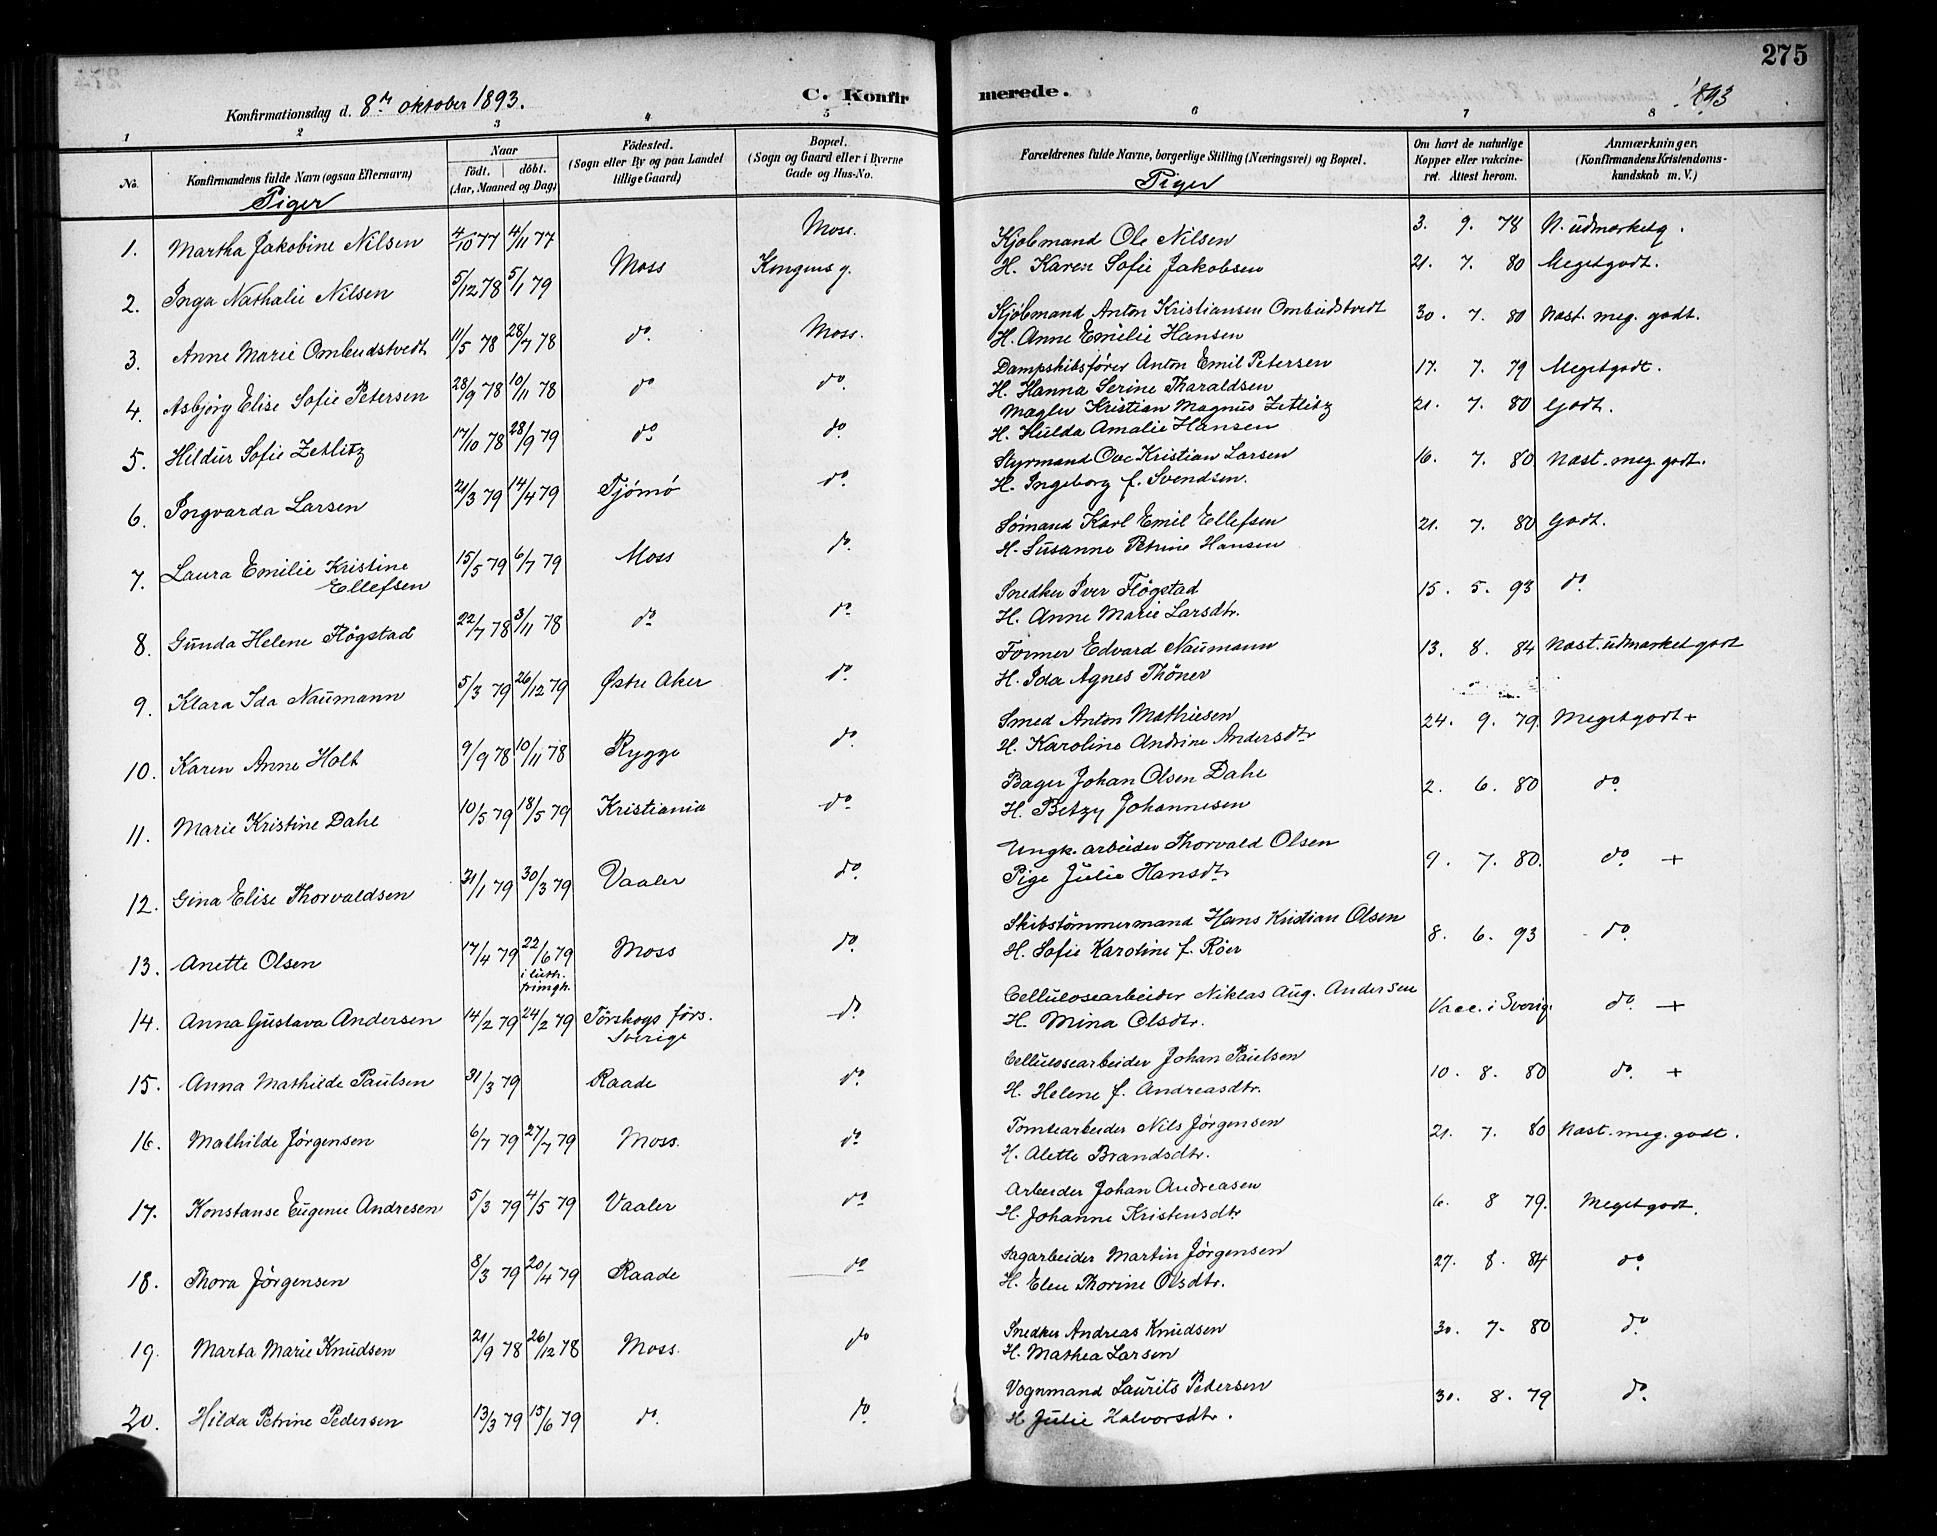 275
Konfirmationsdag d. 8de oktober 1893.
C. Konfirmerede.
1893
1 2 3 4 5 6 7 8
No.
Konfirmandens fulde Navn (ogsaa Efternavn)
Piger
Naar
födt. döbt.
(Aar, Maaned og Dag)
Födested.
(Sogn eller By og paa Landet tillige Gaard)
Bopæl.
(Sogn og Gaard eller i Byerne Gade og Hus-No.
Forældrenes fulde Navne, borgerlige Stilling (Næringsvei) og Bopæl.
Piger
Om havt de naturlige Kopper eller vakcineret. Attest herom.
Anmærkninger.
(Konfirmandens Kristendomskundskab m. V.)
1. Martha Jakobine Nilsen 4/10 77 4/11 77 Moss. Kjøbmand Ole Nilsen 3. 9. 78 N. udmarketg.
H. Karen Sofie Jakobsen
2. Inga Nathalie Nilsen 5/12 78 5/1 79 Moss Kongens g. 21. 7. 80 Megetgodt.
3. Anne Marie Ombudstvedt 11/5 78 28/7 78 do. Moss. Kjøbmand Anton Kristiansen Ombudstvedt 30. 7. 80 Næst. meg. godt.
H. Anne Emilie Hansen
4. Asbjörg Elise Sofie Petersen 28/9 78 10/11 78 do do. Dampskibsförer Anton Emil Petersen 17. 7. 79 Megetgodt.
H. Hanna Serine Tharaldsen
5. Hildur Sofie Zetlitz 17/10 78 28/9 79 do do. Mægler Kristian Magnus Zetlitz 21. 7. 80 Godt.
H. Hulda Amalie Hansen
6. Ingvarda Larsen 21/3 79 14/4 79 Tjömö do. Styrmand Ove Kristian Larsen 16. 7. 80 Næst. meg. godt.
H. Ingeborg f. Svendsen.
7. Laura Emilie Kristine Ellefsen 15/5 79 6/7 79 Moss do. Sömand Karl Emil Ellefsen 21. 7. 80 Godt.
H. Susanne Petrine Hansen
8. Gunda Helene Flögstad 22/7 78 3/11 78 do do. Snedker Iver Flögstad 15. 5. 93 do
H. Anne Marie Larsdtr.
9. Klara Ida Naumann 5/3 79 26/12 79 Østre Aker do. Former Edvard Naumann 13. 8. 84 Næst. udmærket godt
H. Ida Agnes Thöner
10. Karen Anne Holt 9/9 78 10/11 78 Rygge do. Smed Anton Mathiesen 24. 9. 79. Megetgodt +
H. Karoline Andrine Andersdtr
11. Marie Kristine Dahl 10/5 79 18/5 79 Kristiania do Bager Johan Olsen Dahl 2. 6. 80 do.
H. Betzy Johannesen
12. Gina Elise Thorvaldsen 31/1 79 30/3 79 Vaaler do. Ungk. arbeider Thorvald Olsen 9. 7. 80. do. +
Pige Julie Hansdtr
13. Anette Olsen 17/4 79 22/6 79 i luth. frimgh. Moss do. Skibstömmermand Hans Kristian Olsen 8. 6. 93 do.
H. Sofie Karoline f. Röer
14. Anna Gustava Andersen 14/2 79 24/2 79 Törskogs förs. Sverige do Cellulosearbeider Niklas Aug. Andersen Vacc. i Sverig. do. +
H. Mina Olsdtr.
15. Anna Mathilde Paulsen 31/3 79 Raade do. Cellulosearbeider Johan Paulsen 10. 8. 80 do. +
H. Helene f. Andreasdtr.
16. Mathilde Jörgensen 6/7 79 27/7 79 Moss. do. Tomtearbeider Nils Jörgensen 21. 7. 80 Næst. meg. godt.
H. Alette Brandsdtr.
17. Konstanse Eugenie Andresen 5/3 79 4/5 79 Vaaler do Arbeider Johan Andreasen 6. 8 79. Megetgodt.
H. Johanne Kristensdtr
18. Thora Jörgensen 8/3 79 20/4 79 Raade do Sagarbeider Martin Jörgensen 27. 8. 84 do.
H. Elen Thorine Olsdtr.
19. Marta Marie Knudsen 21/9 78 26/12 78 Moss. do Snedker Andreas Knudsen 30. 7. 80 do.
H. Mathea Larsen
20. Hilda Petrine Pedersen 13/3 79 15/6 79 do. do. Vognmand Laurits Pedersen 30. 8. 79 do.
H Julie Halvorsdtr.